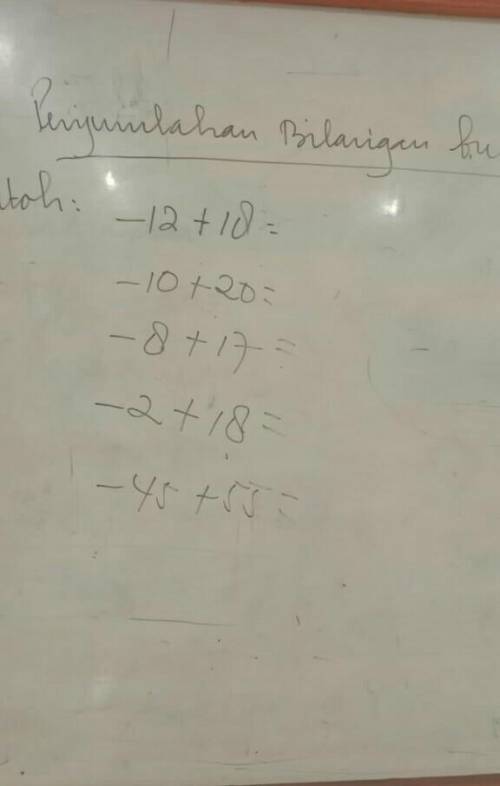 Penjumlahan Bilangan bu
ntoh:
-12+18=
-10+20=
-8+17=
-2+18=
-45+55=